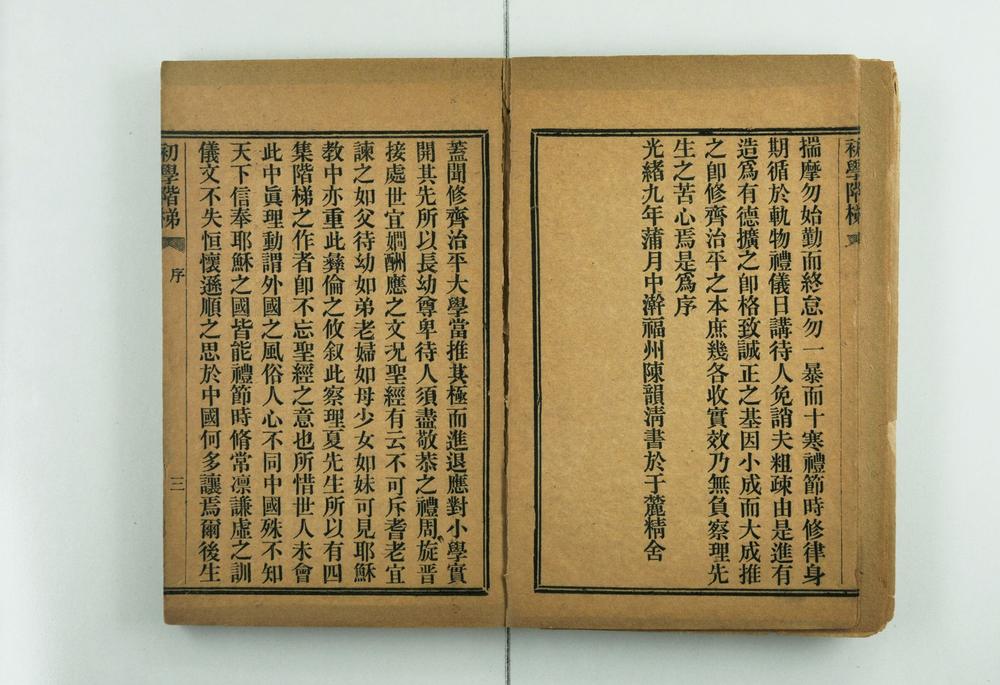 初學階梯
揣摩勿始勤而終怠勿一暴而十寒禮節時修律身
期循於軌物禮儀日講待人免誚夫粗疎由是進有
造爲有德擴之卽格致誠正之基因小成而大成推
之卽修齊治平之本庶幾各收實效乃無負察理先
生之苦心焉是爲序
光緖九年蒲月中澣福州陳韻淸書於于麓精舍
蓋聞修齊治平大學當推其極而進退應對小學實
開其先所以長幼尊卑待人須盡敬恭之禮周旋晋
接處世宜嫺酬應之文况聖經有云不可斥耆老宜
諫之如父待幼如弟老婦如母少女如妹可見耶穌
教中亦重此彝倫之攸叙此察理夏先生所以有四
集階梯之作者卽不忘聖經之意也所惜世人未會
此中眞理動謂外國之風俗人心不同中國殊不知
天下信奉耶穌之國皆能禮節時脩常凛謙虛之訓
儀文不失恒懷遜順之思於中國何多讓焉爾後生
初學階梯
序
三